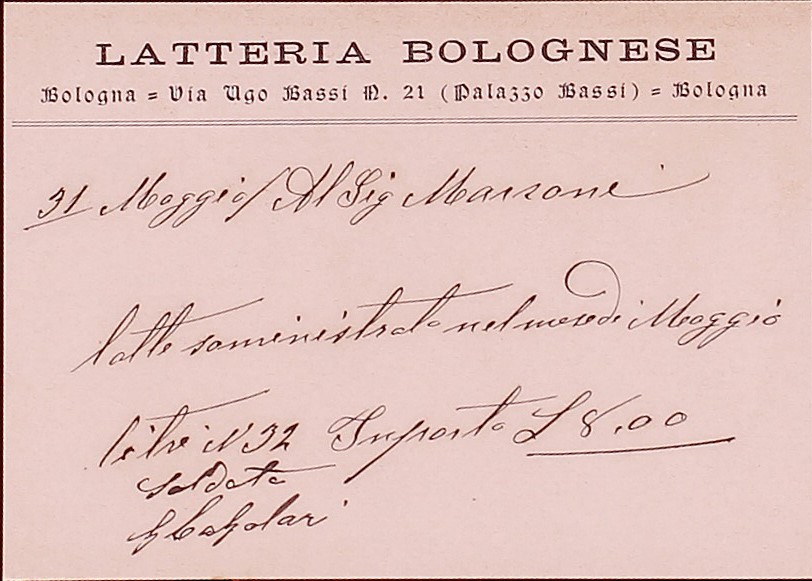 LATTERIA BOLOGNESE
Bologna = Via Ugo Bassi N. 21 (Palazzo Bassi) = Bologna
31 Maggio / Al Sig Marzoni
latte soministrato nel mese di Maggio
litri N 32 Importo £ 8.00
saldato